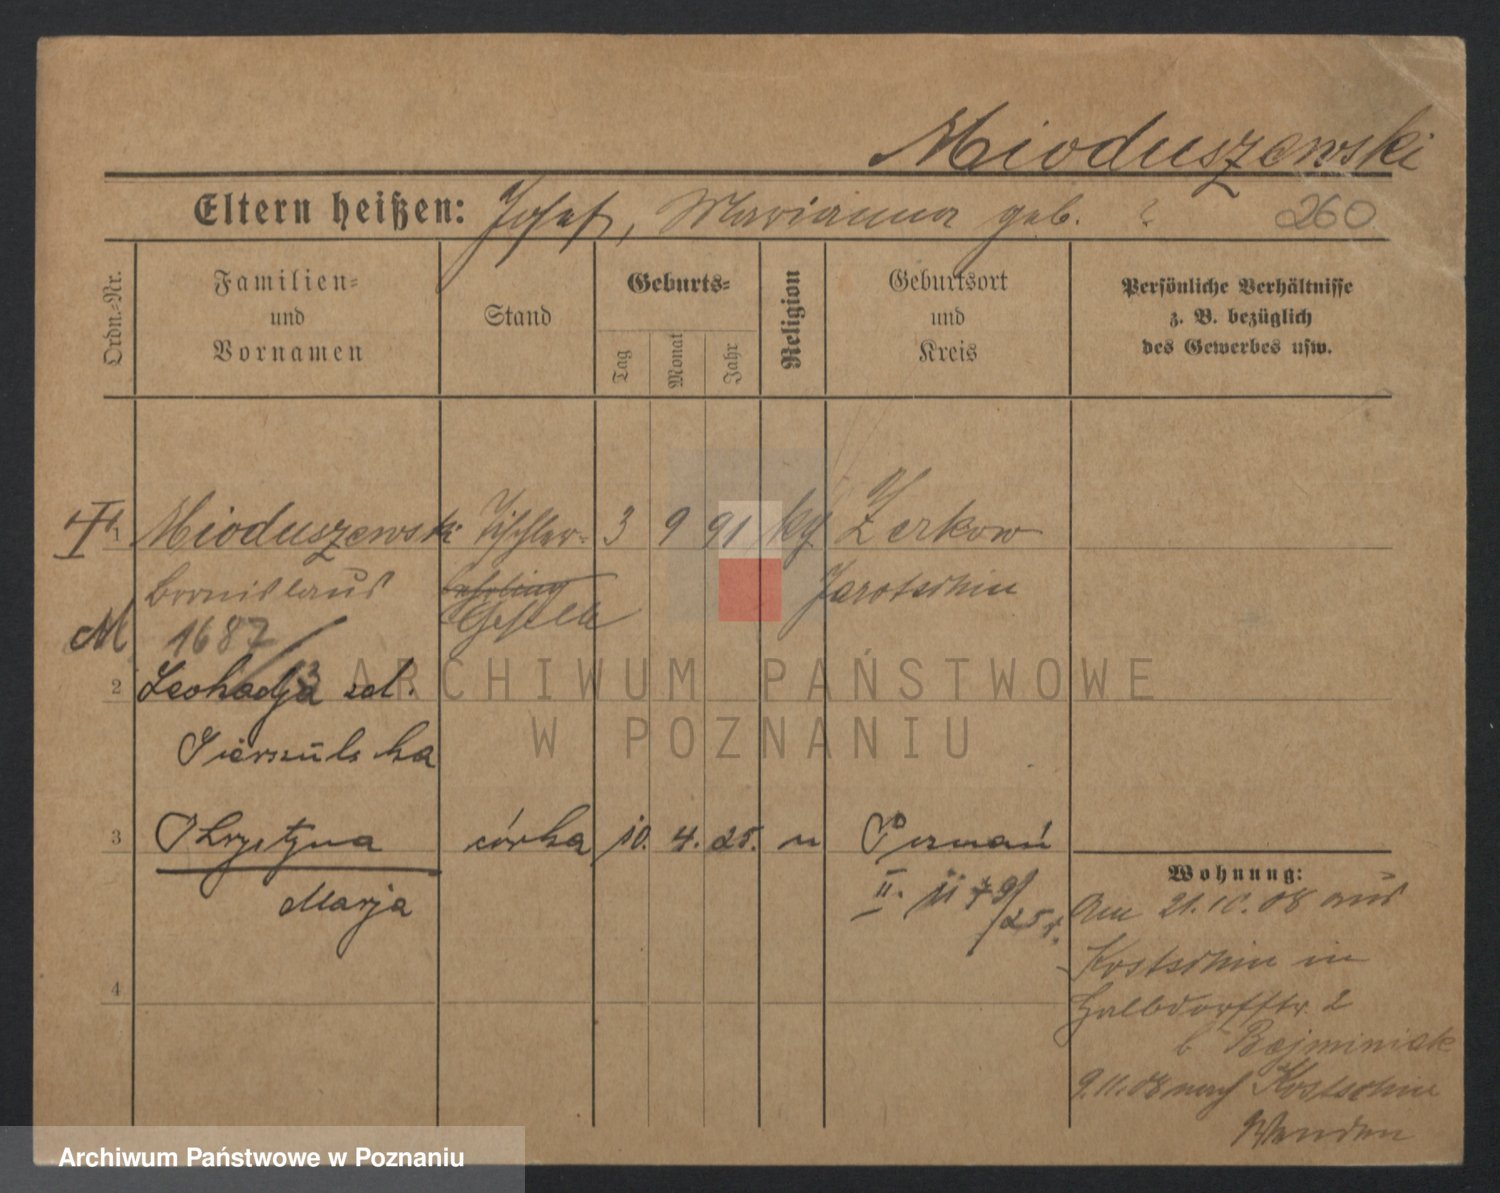 Mioduszewski
Eltern heißen: Josef, Marianna geb. ? 260
Ordn.-Nr.
Familien- und Vornamen
Stand
Geburts-
Tag
Monat
Jahr
Religion
Geburtsort und Kreis
Persönliche Verhältnisse
z. B. bezüglich
des Gewerbes usw.
1 Mioduszewski Tischler- 3 9 91 kt Zerkow
Bronislaus Lehrling Jarotschin
Geselle
M 1687
2 Leokadja
3 Krystyna córka 10. 4. 25. Poznań
Marja II.
Wohnung:
Am 21.10.08 aus
Kostschin in
Halbdorfstr. 2
b Bejminiak
9.11.08 nach Kostschin
Wenden
4
ARCHIWUM PAŃSTWOWE
W POZNANIU
Archiwum Państwowe w Poznaniu